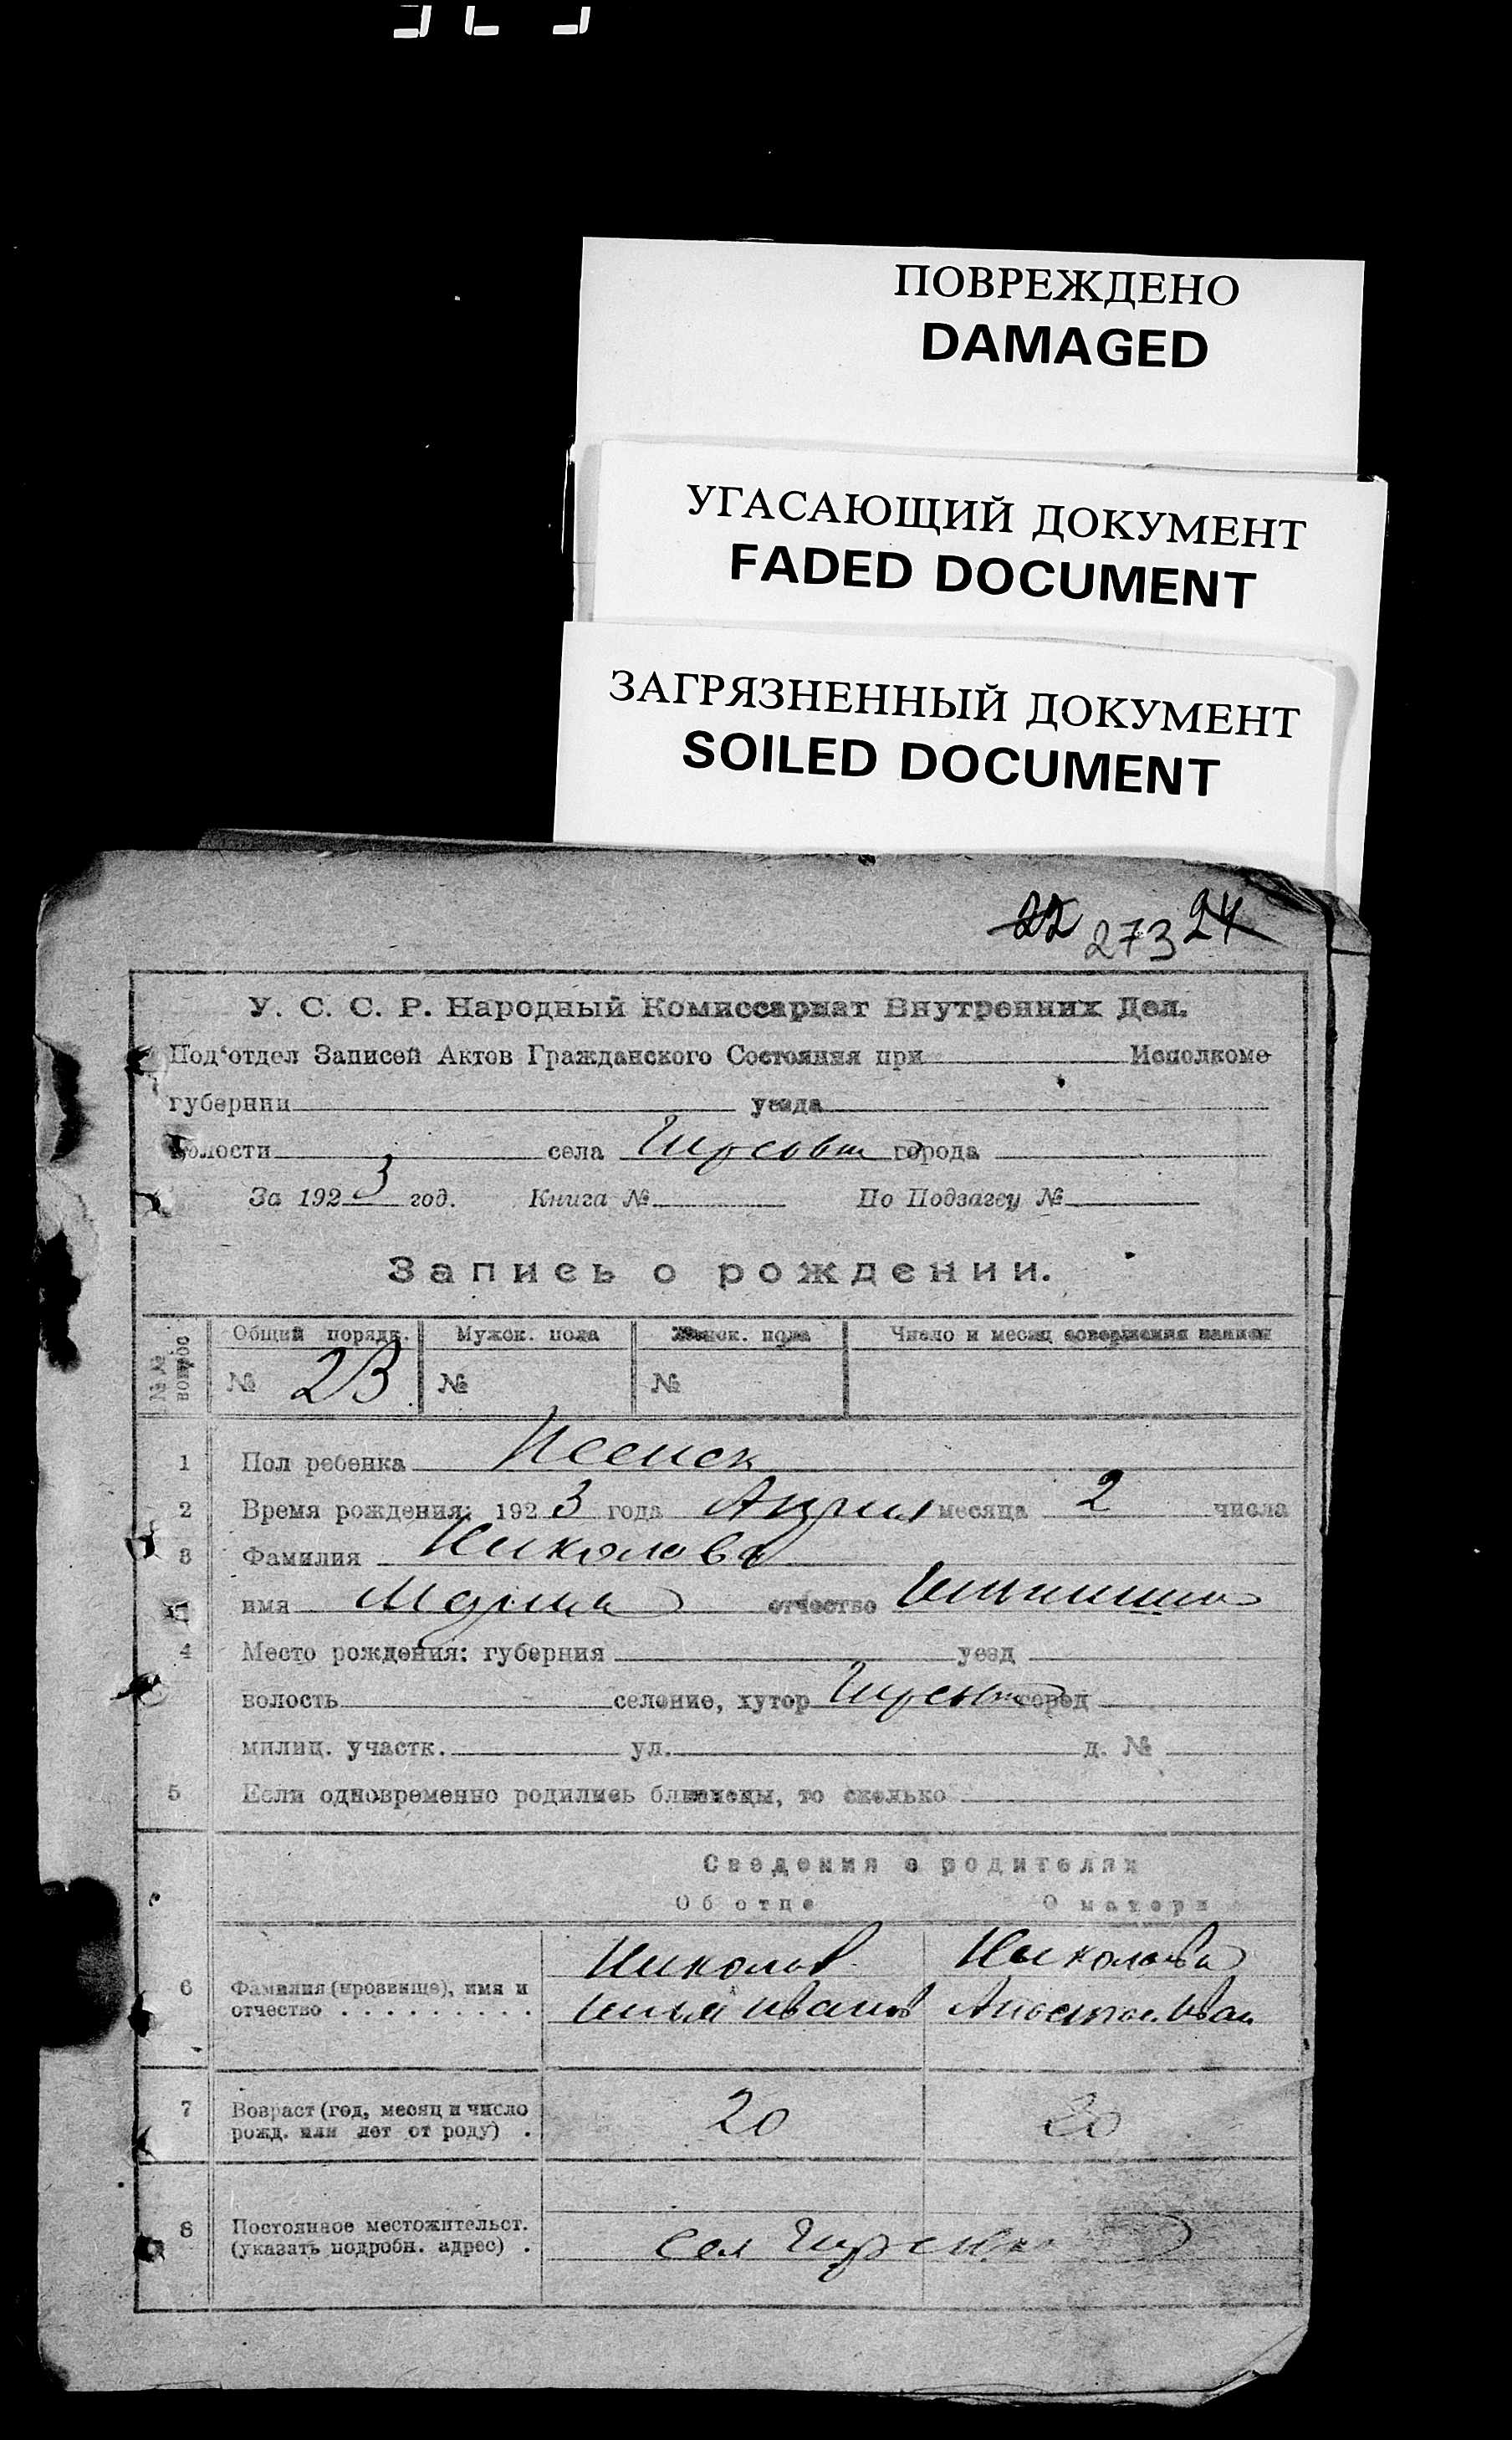 ПОВРЕЖДЕНО
DAMAGED
УГАСАЮЩИЙ ДОКУМЕНТ
FADED DOCUMENT
ЗАГРЯЗНЕННЫЙ ДОКУМЕНТ
SOILED DOCUMENT
22 273 24
У. С. С. Р. Народный Комиссариат Внутренних Дел.
Под‘отдел Записей Актов Гражданского Состояния при Исполкоме
губернии уезда
волости села города
За 1923 год. Книга № По Подзагсу №
Запись о рождении.
№№ вопрос Общий порядк. Мужск. пола Женск. пола Число и месяц совершения записи
№ 23 № №
1 Пол ребенка Женск
2 Время рождения: 1923 года Апреля месяца 2 числа
3 Фамилия Николова
имя Мария отчество
4 Место рождения: губерния уезд
волость селение, хутор город
милиц. участк. ул. д. №
5 Если одновременно родились близнецы, то сколько
Сведения о родителях
Об отце О матери
Николов Николова
6 Фамилия (прозвище), имя и
отчество . . . . . . . . . Илья Иванов Иван
7 Возраст (год, месяц и число
рожд. или лет от роду) . 20 20
8 Постоянное местожительст.
(указать подробн. адрес) . Сел